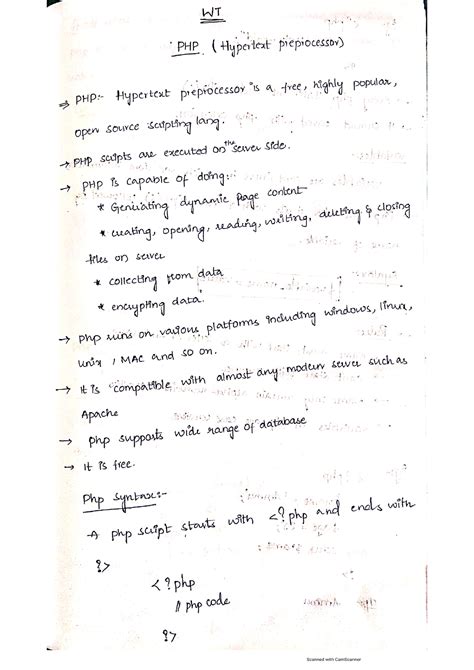 WT
PHP (Hypertext preprocessor)
⇒ PHP:- Hypertext preprocessor is a free, highly popular,
open source scripting lang.
→ PHP scripts are executed on the server side.
→ PHP is capable of doing:
* Generating dynamic page content
* creating, opening, reading, writing, deleting & closing
files on server
* collecting from data
* encrypting data.
→ php runs on various platforms including windows, linux,
unix, MAC and so on.
→ It is compatible with almost any modern server such as
Apache
→ php supports wide range of database
→ It is free.
Php Syntax:-
A php script starts with <?php and ends with
?>
<?php
// php code
?>
Scanned with CamScanner